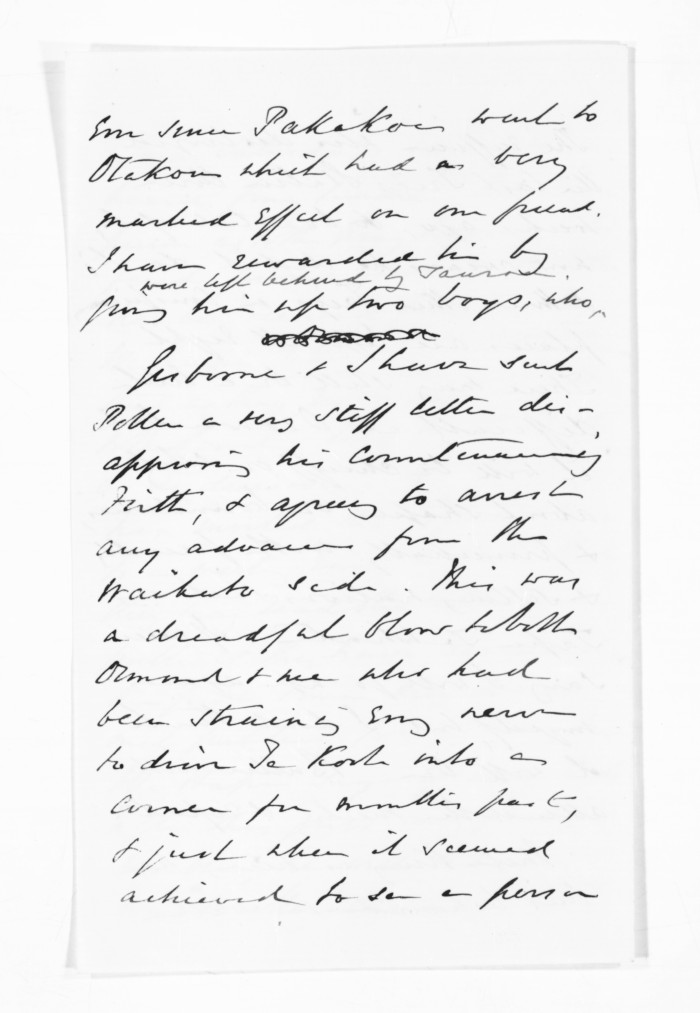 Ever since Pakakoe went to
Otakou which had a very
marked effect on our friend.
I have rewarded him by
were left behind by
giving him up two boys, who,
Gisborne & I have sent
Pollen a very stiff letter dis-
approving his countenancing
Firth, & agreeing to arrest
any advance from the
Waikato side. This was
a dreadful blow to both
Ormond & me who had
been straining every nerve
to drive Te Kooti into a
corner for months past,
& just when it seemed
achieved to see a person